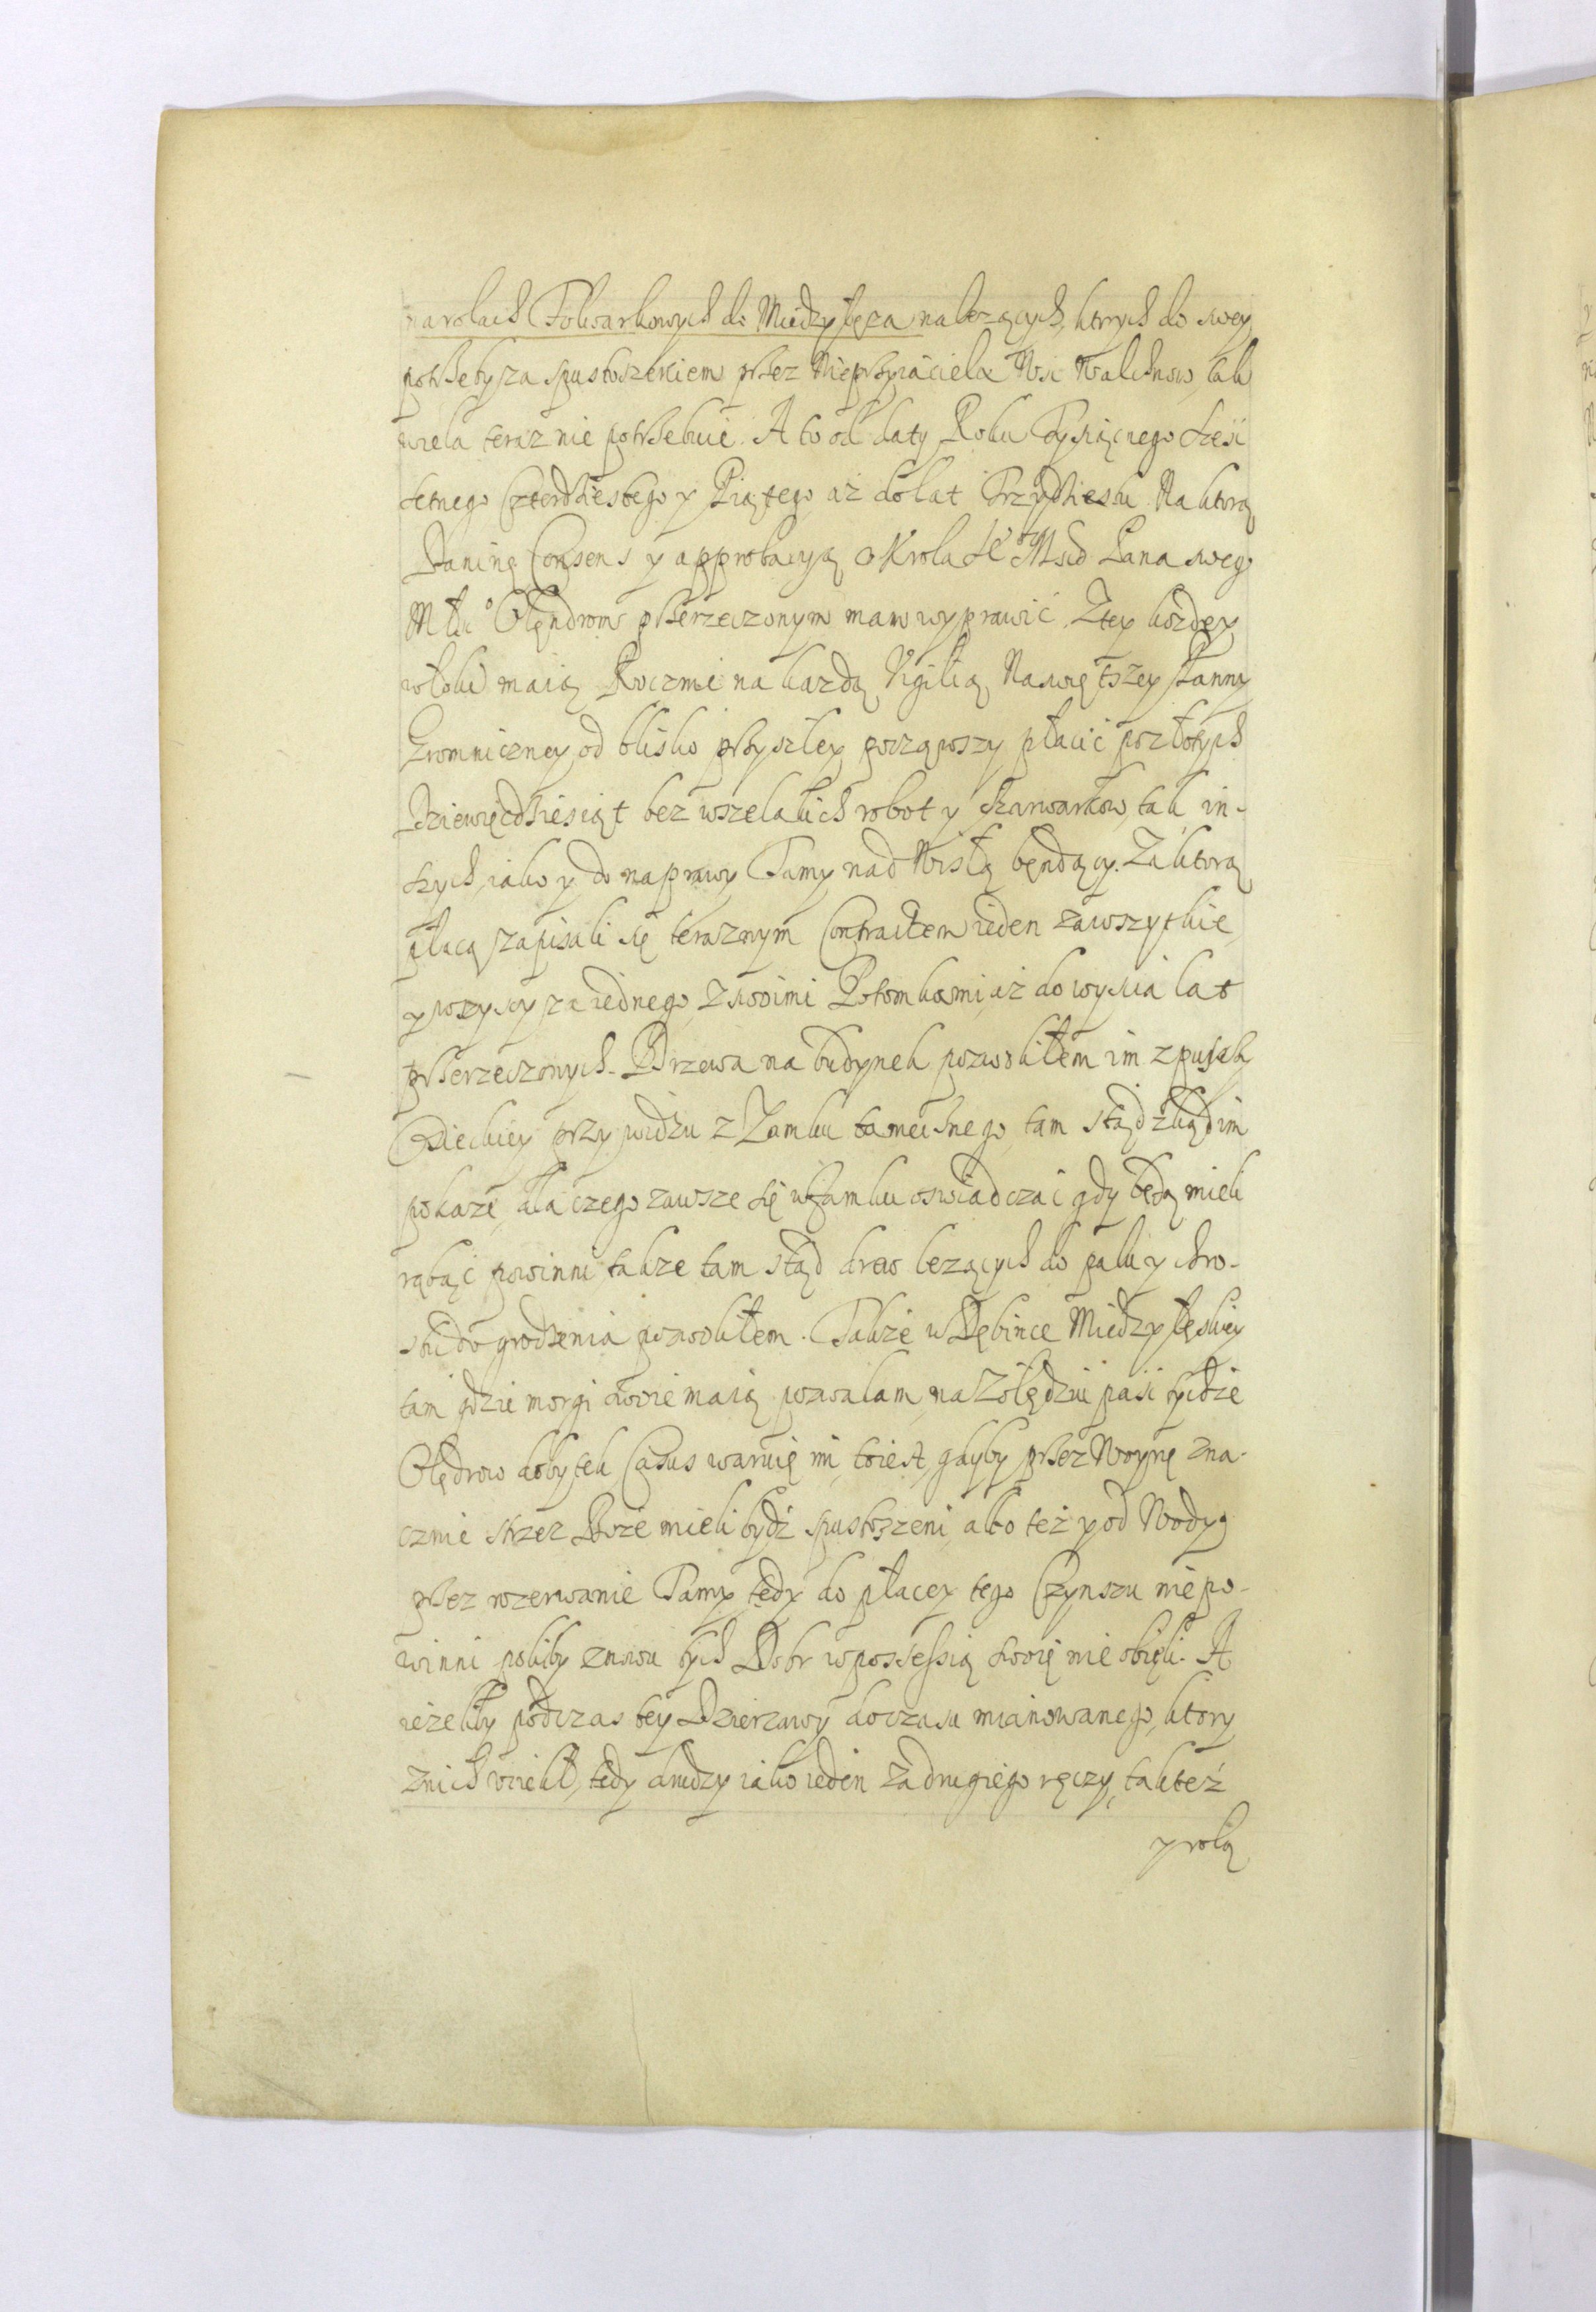 na rolach Folwarkowych do Międzyłęza należących, ktrych do swey
potrzeby za spustoszeniem przez Nieprzyiaciela Wsi Walichnow, tak
wiela teraz nie potrzebuie. A to od daty Roku Tysiącnego sześć
setnego Czterdziestego y Piątego aż do lat Trzydziestu. Na ktorą
Daninę Consens y approbacyą o Krola Je° Mści Pana mego
Młć° Olęndrom przerzeczonym mam wyprawić. Z tey kożdey
włoki maią Rocznie na każdą Vigilią Naswiętszey Panny
Gromniczney od blisko przyszłey począwszy płacić po złotych
Dziewięcdziesiąt bez wszelakich robot y szarwarkow, tak in-
szych, iako y do naprawy Tamy nad Wisłą będący. Za ktorą
płacą zapisali się teraznym Contractem ieden za wszytkie,
y wszyscy za iednego, z swoimi Potomkami, aż do wyscia lat
przerzeczonych. Drzewa na budynek pozwoliłem im z puszczy
Osieckiey przy widzu z Zamku tamecznego, tam stąd zkąd im
pokaże, dla czego zawsze się w Zamku oswiadczać gdy będą mieli
rąbać powinni, także tam stąd drew leżących do palu y chro-
stu do grodzenia pozwoliłem. Także w Dębince Międzyłęskiey
tam gdzie morgi swoie maią pozwalam, na Żołędziu paść tychże
Olędrow dobytek, Casus waruię im, to iest, gdyby przez Woynę zna-
cznie strzez Boże mieli bydź spustoszeni, albo też pod Wodyą
przez wzerwanie Tamy, tedy do płacey tego Czynszu nie po-
winni, pokiby znowu tych Dobr w possessią swoię nie obięli. A
ieżeliby podczas tey Dzierżawy do czasu mianowanego, ktory
z nich uciekł, tedy drudzy iako ieden za drugiego ręczy, tak też
y rolą